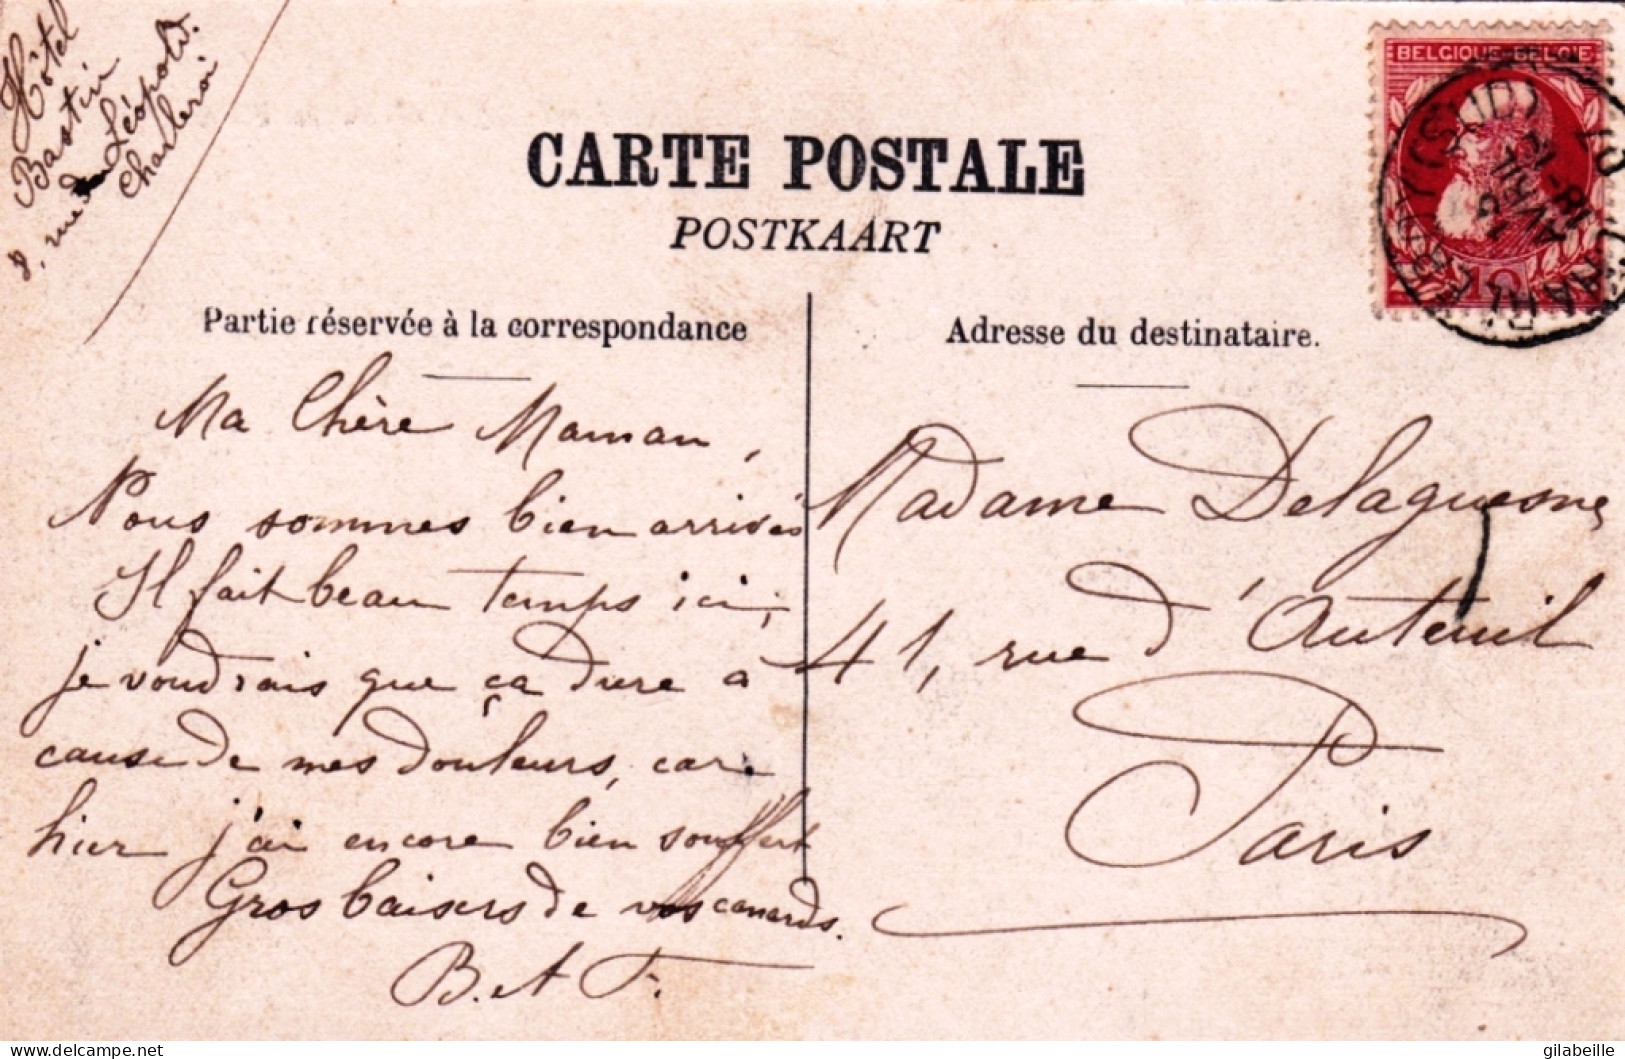 Hôtel
Bastin
8, rue du Léopold.
Charleroi
BELGIQUE-BELGIE
CARTE POSTALE
POSTKAART
Partie réservée à la correspondance
Adresse du destinataire.
Ma Chère Maman,
Nous sommes bien arrivés
Il fait beau temps ici;
je voudrais que ça dure à
cause de mes douleurs, car
hier j'ai encore bien souffert
Gros baisers de vos canards.
B. et F.
Madame Delaguesne
41, rue d'Auteuil
Paris
10
(SUD)
AVRIL
gilabeille